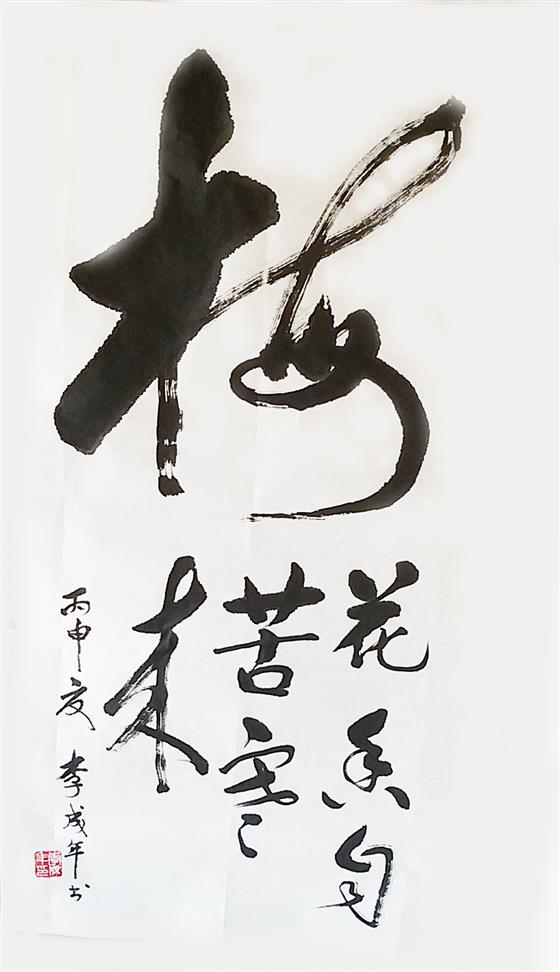 梅
花香自
苦寒
来
丙申夏 李成年书